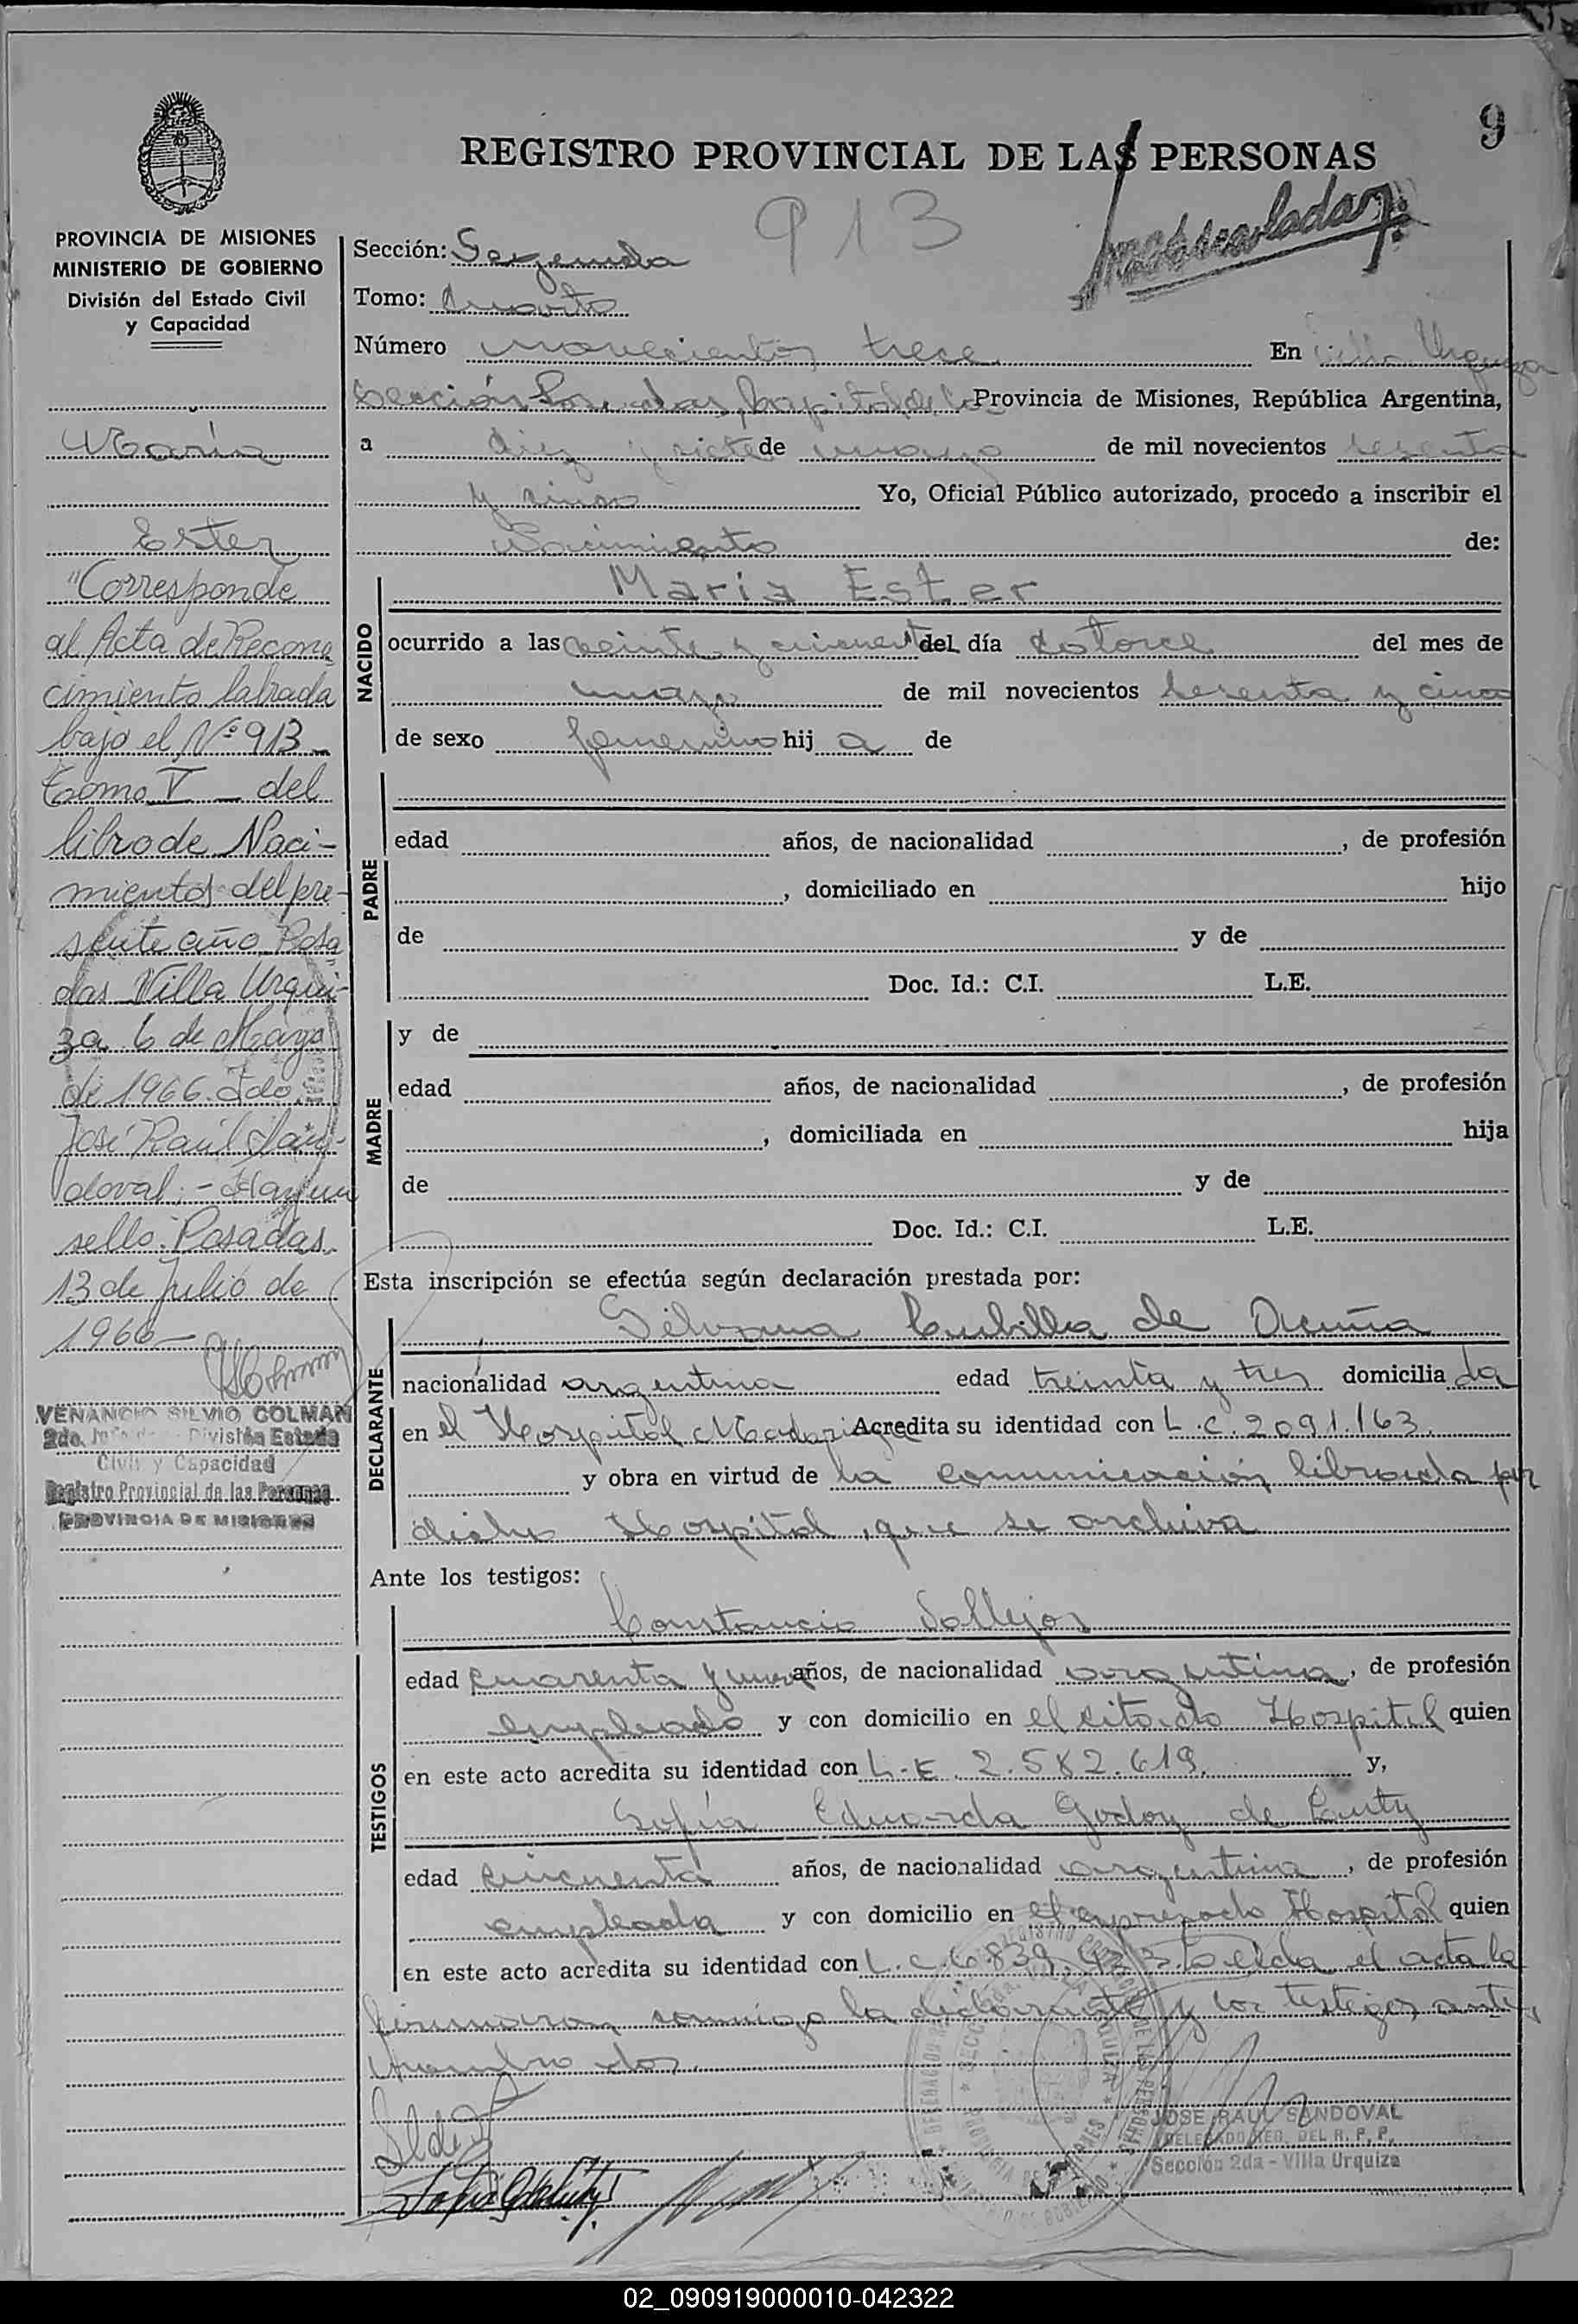 9
REGISTRO PROVINCIAL DE LAS PERSONAS
913
PROVINCIA DE MISIONES
MINISTERIO DE GOBIERNO
División del Estado Civil
y Capacidad
María
Ester
"Corresponde
al Acta de Recono
cimiento labrada
bajo el Nº 913
tomo V - del
libro de Naci-
mientos del pre-
sente año Posa
das Villa Urqui-
za 6 de Mayo
de 1966. Fdo.
José Raúl San-
doval.- Hay un
sello. Posadas
13 de Julio de
1966-
VENANCIO SILVIO COLMAN
2do. Jefe de División Estado
Civil y Capacidad
Registro Provincial de las Personas
PROVINCIA DE MISIONES
Sección: Segunda
Tomo: Cuarto
Número novecientos trece En Villa Urquiza
sección Posadas, Capital de la Provincia de Misiones, República Argentina,
a diez y siete de mayo de mil novecientos sesenta
y cinco Yo, Oficial Público autorizado, procedo a inscribir el
Nacimiento de:
NACIDO
Maria Ester
ocurrido a las veinte y del día catorce del mes de
mayo de mil novecientos sesenta y cinco
de sexo femenino hij a de
PADRE
edad años, de nacionalidad , de profesión
, domiciliado en hijo
de y de
Doc. Id.: C.I. L.E.
MADRE
y de
edad años, de nacionalidad , de profesión
, domiciliada en hija
de y de
Doc. Id.: C.I. L.E.
Esta inscripción se efectúa según declaración prestada por:
DECLARANTE
Cubilla de Acuña
nacionalidad argentina edad treinta y tres domicilia da
en el Hospital Madariaga Acredita su identidad con L.C. 2091.163.
y obra en virtud de la comunicación librada por
dicho Hospital, que se archiva
Ante los testigos:
TESTIGOS
Constancio Vallejos
edad cuarenta y años, de nacionalidad argentina, de profesión
empleado y con domicilio en el citado Hospital quien
en este acto acredita su identidad con L.E. 2.582.619. y,
Sofía Eduarda Godoy de
edad cincuenta años, de nacionalidad argentina, de profesión
empleada y con domicilio en el expresado Hospital quien
en este acto acredita su identidad con L.C. 6.839. Leída el acta la
firmaron conmigo la declarante y los testigos
dos.
JOSE RAUL SANDOVAL
DELEGADO REG. DEL R. P. P.
Sección 2da - Villa Urquiza
02_090919000010-042322